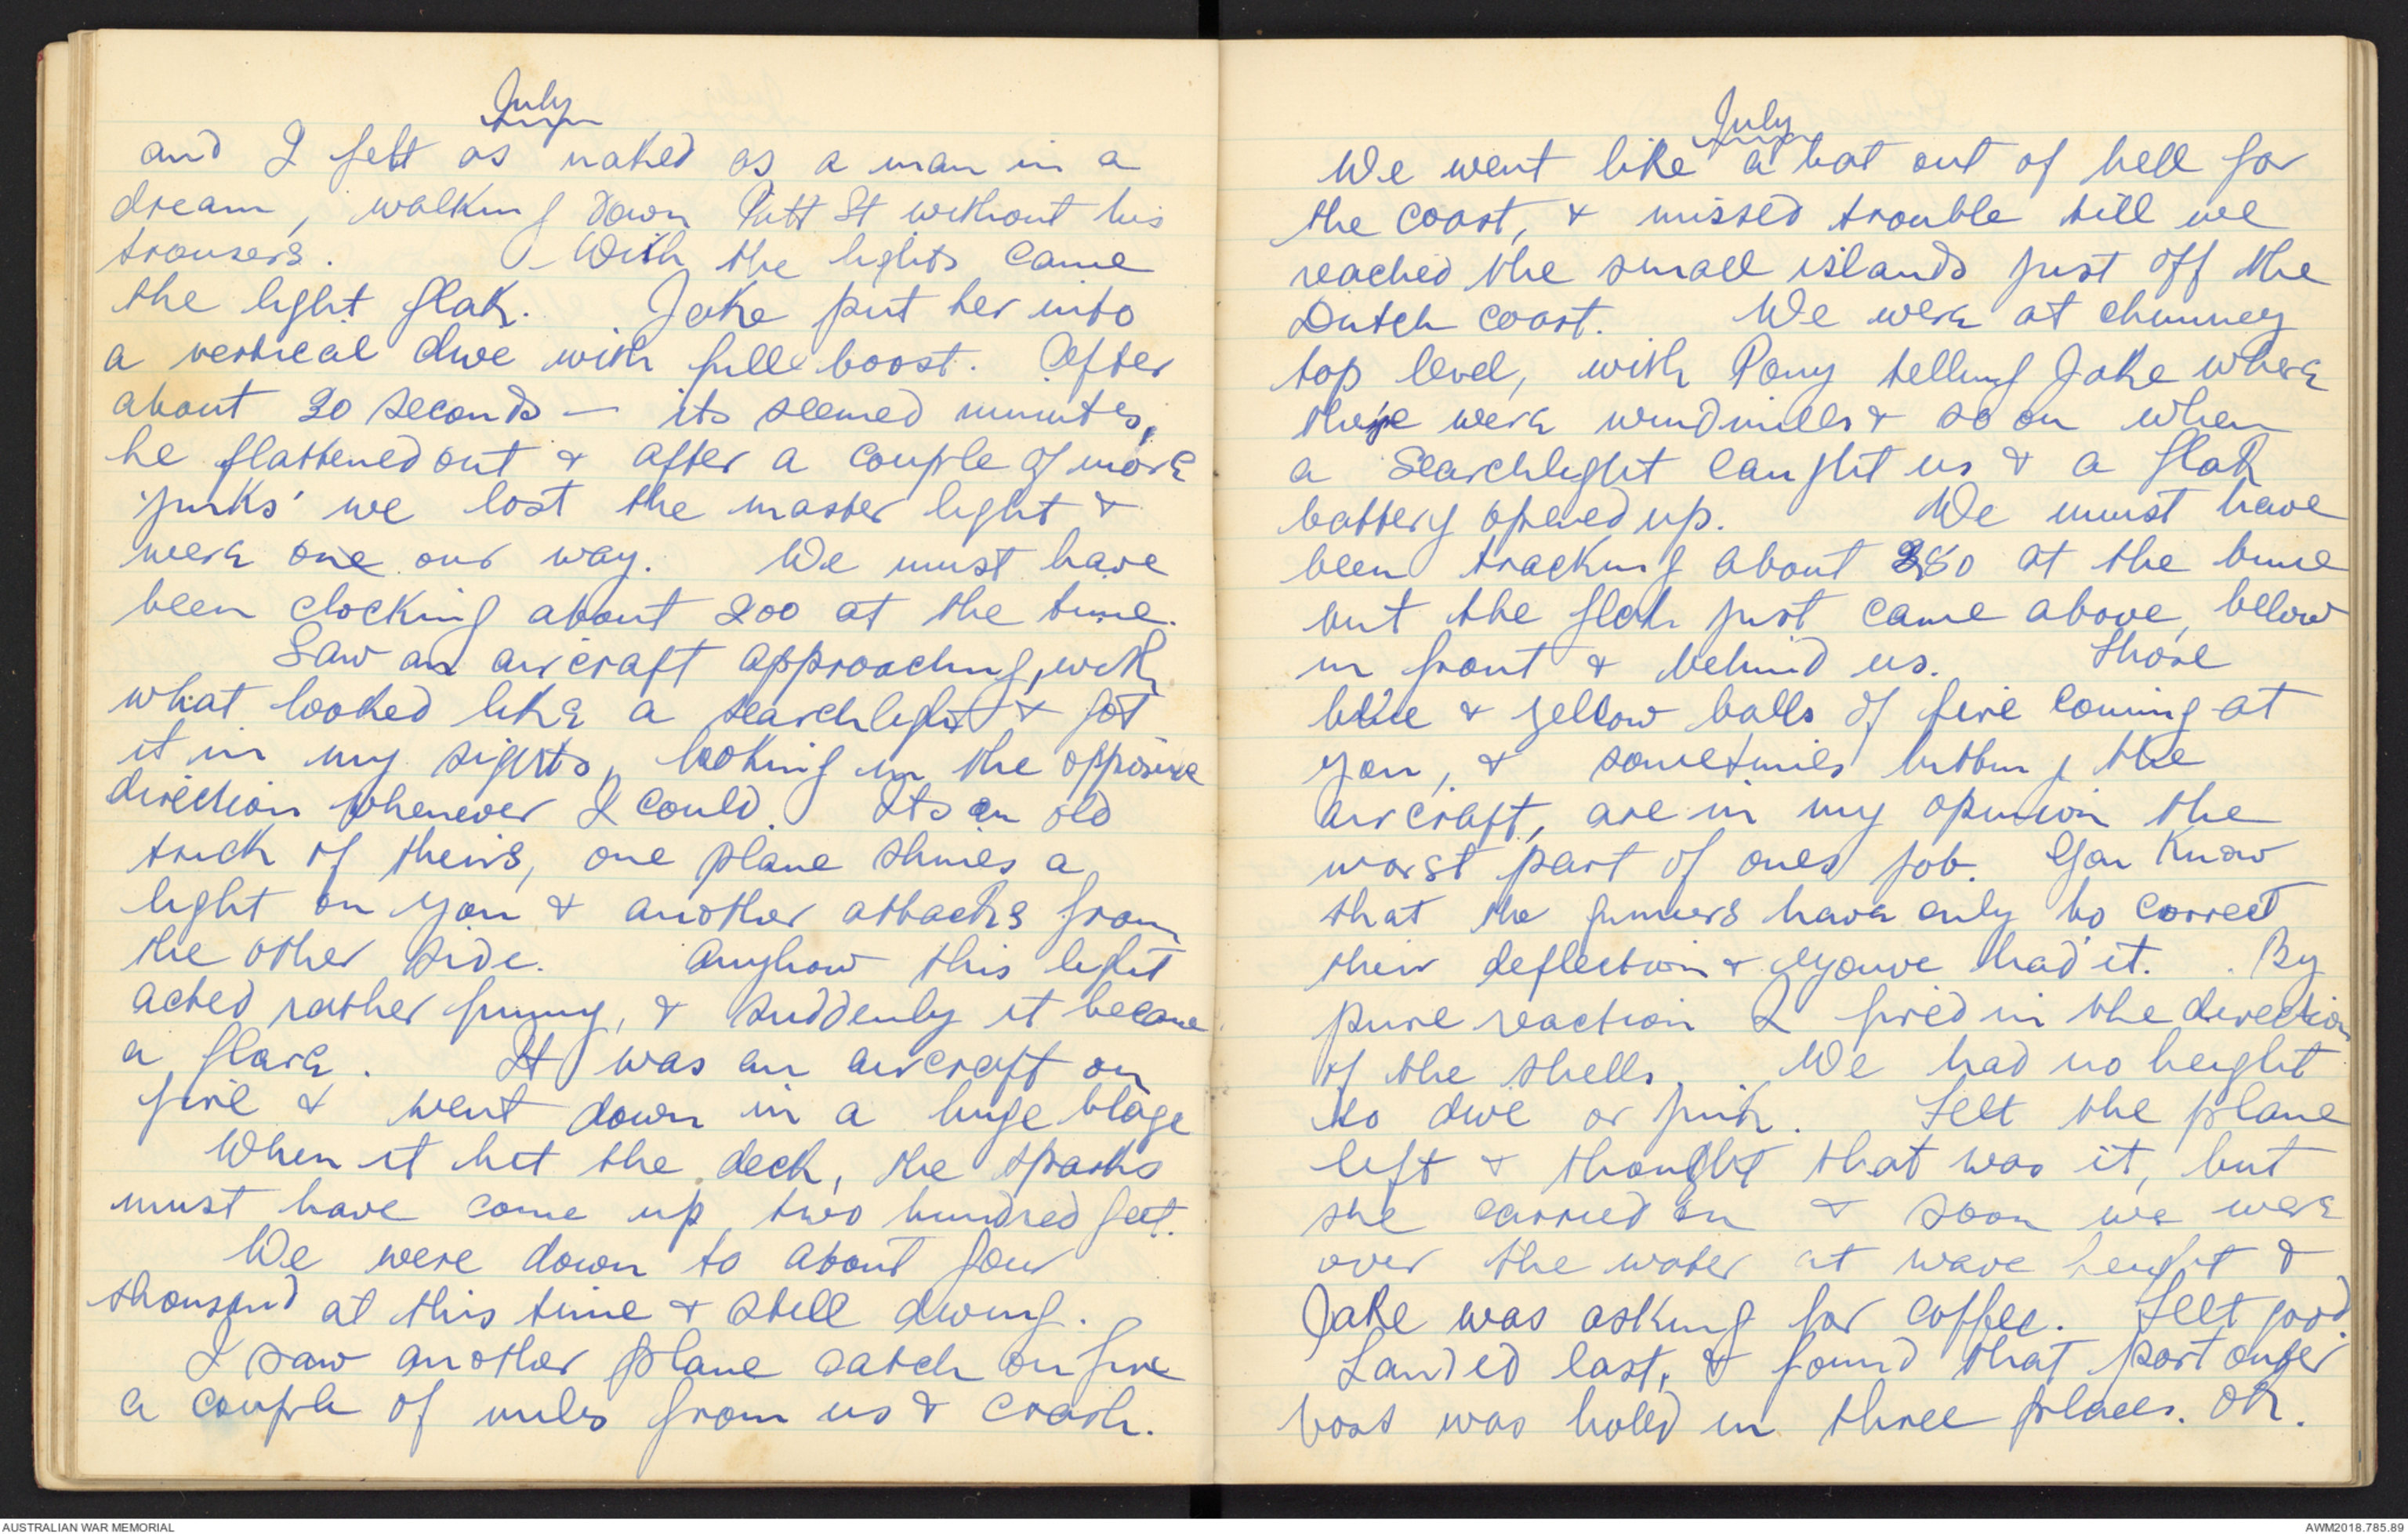 July
and I felt as naked as a man in a
dream, walking down Pitt St without his
trousers. With the lights came
the light flak. Jake put her into
a vertical dive with full boost. After
about 20 seconds — its seemed minutes,
he flattened out & after a couple of more
'jinks' we lost the master light &
were one our way. We must have
been clocking about 200 at the time.
Saw an aircraft approaching, with
what looked like a searchlight & got
it in my sights, looking in the opposite
direction whenever I could. Its an old
trick of theirs, one plane shines a
light on you & another attacks from
the other side. Anyhow this light
acted rather funny, & suddenly it became
a flare. It was an aircraft on
fire & went down in a huge blaze
When it hit the deck, the sparks
must have come up two hundred feet.
We were down to about four
thousand at this time & still diving.
I saw another plane catch on fire
a couple of miles from us & crash.
July
We went like a bat out of hell for
the coast, & missed trouble till we
reached the small islands just off the
Dutch coast. We were at chimney
top level, with Pony telling Jake where
there were windmills & so on when
a searchlight caught us & a flak
battery opened up. We must have
been tracking about 280 at the time
but the flak just came above, below
in front & behind us. Those
blue & yellow balls of fire coming at
you, & sometimes hitting the
aircraft, are in my opinion the
worst part of ones job. You know
that the gunners have only to correct
their deflection & youve 'had' it. By
pure reaction I fired in the direction
of the shells. We had no height
to dive or jink. Felt the plane
lift & thought that was it, but
she carried on & soon we were
over the water at wave height &
Jake was asking for coffee. Felt good.
Landed last, & found that port outer
boss was holed in three places. OK.
AUSTRALIAN WAR MEMORIAL
AWM2018.785.89